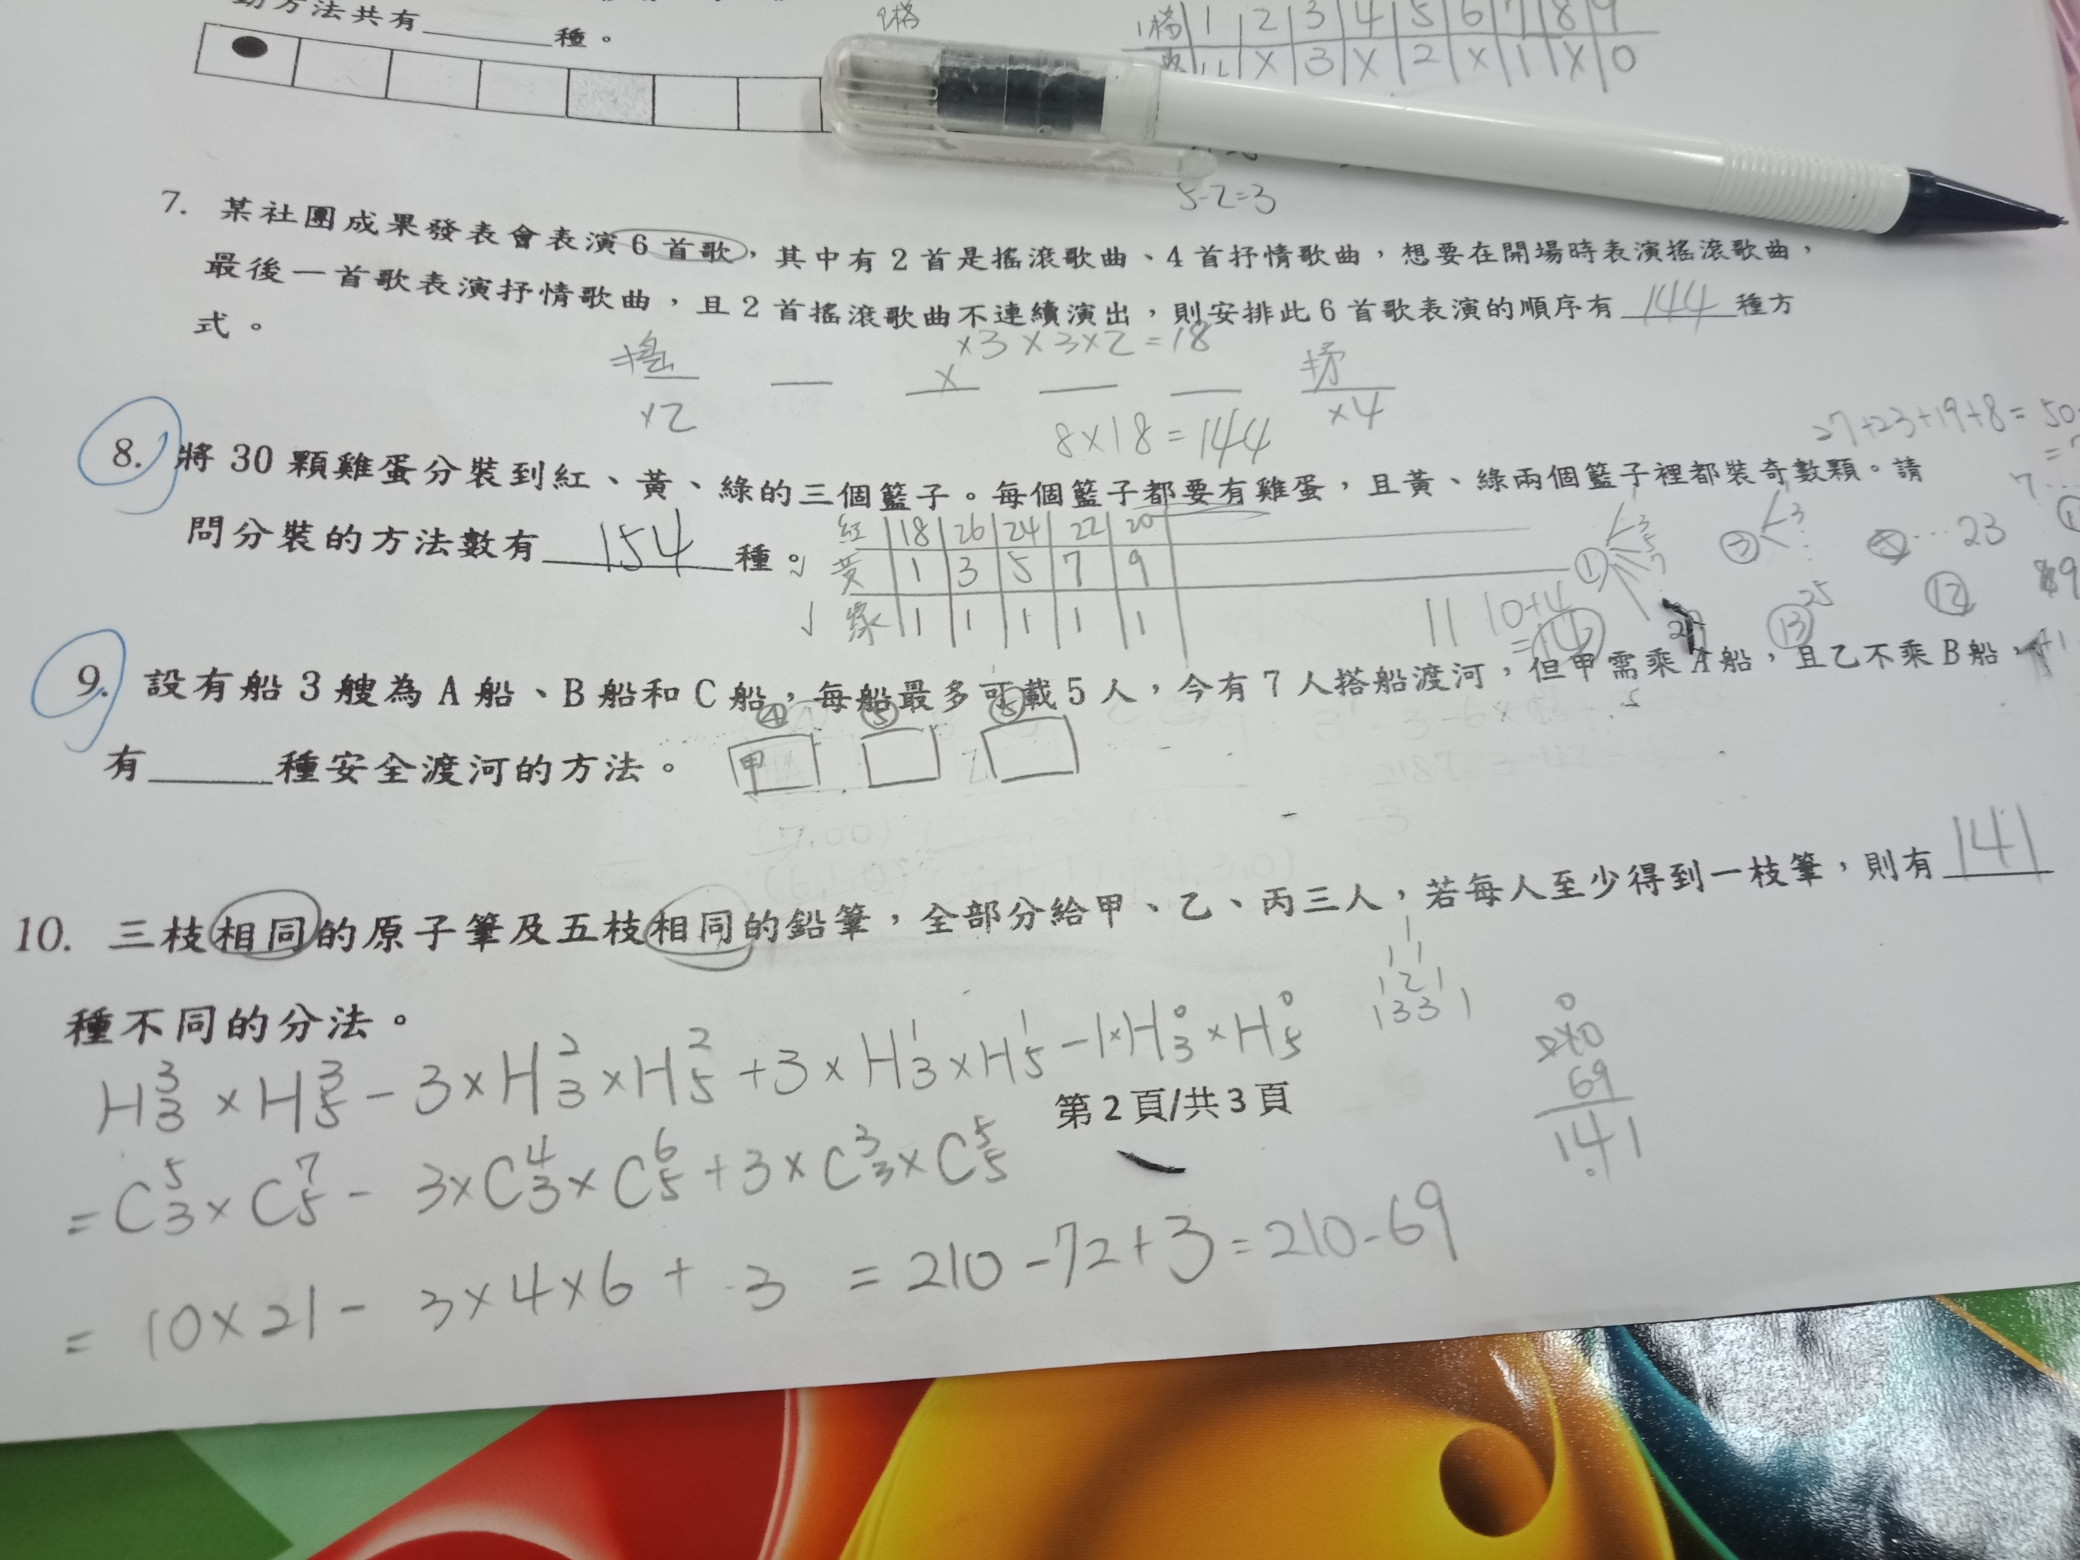 方法共有______種。
2格
1格 1 2 3 4 5 6 7 8 9
X 3 X 2 X 1 X 0
5-2=3
7. 某社團成果發表會表演6首歌，其中有2首是搖滾歌曲、4首抒情歌曲，想要在開場時表演搖滾歌曲，
最後一首歌表演抒情歌曲，且2首搖滾歌曲不連續演出，則安排此6首歌表演的順序有 144 種方
式。
×3×3×2=18
搖 X 抒
×2 ×4
8×18=144
27+23+19+8=50
8. 將30顆雞蛋分裝到紅、黃、綠的三個籃子。每個籃子都要有雞蛋，且黃、綠兩個籃子裡都裝奇數顆。請
問分裝的方法數有 154 種。
紅 18 26 24 22 20
黃 1 3 5 7 9
綠 1 1 1 1 1
11 10+4
=14
9. 設有船3艘為A船、B船和C船，每船最多可載5人，今有7人搭船渡河，但甲需乘A船，且乙不乘B船，
有______種安全渡河的方法。
④ ⑤ ⑤
甲
10. 三枝相同的原子筆及五枝相同的鉛筆，全部分給甲、乙、丙三人，若每人至少得到一枝筆，則有 141
種不同的分法。
1
1 1
1 2 1
1 3 3 1
H³₃×H³₅-3×H²₃×H²₅+3×H¹₃×H¹₅-1×H⁰₃×H⁰₅
第2頁/共3頁
=C⁵₃×C⁷₅-3×C⁴₃×C⁶₅+3×C³₃×C⁵₅
=10×21-3×4×6+3=210-72+3=210-69
210
69
141